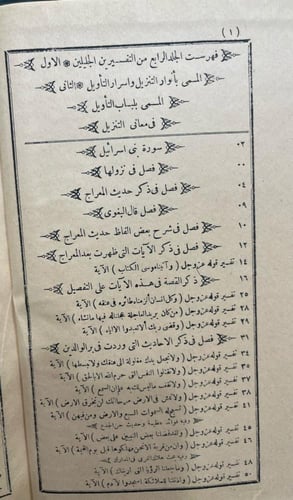 ( ١ )
فهرست الجلد الرابع من التفسيرين الجليلين الاول
المسمى بأنوار التنزيل واسرار التأويل الثانى
المسمى بلباب التأويل
فى معانى التنزيل
٠٢ سورة بنى اسرائيل
٠٠ فصل فى نزولها
٠٤ فصل فى ذكر حديث المعراج
٠٩ فصل قال البغوى
١٠ فصل فى شرح بعض الفاظ حديث المعراج
١٢ فصل فى ذكر الآيات التى ظهرت بعد المعراج
١٤ تفسير قوله عز وجل ( وآتينا موسى الكتاب ) الآية
١٦ ذكر القصة فى هذه الآيات على التفصيل
٢٥ تفسير قوله عز وجل ( وكل انسان ألزمناه طائره فى عنقه ) الآية
٢٨ تفسير قوله عز وجل ( من كان يريد العاجلة عجلنا له فيها ما نشاء )
٢٩ تفسير قوله عز وجل ( وقضى ربك ألا تعبدوا الا اياه ) الآية
٣١ فصل فى ذكر الاحاديث التى وردت فى بر الوالدين
تفسير قوله عز وجل ( ولا تجعل يدك مغلولة الى عنقك ولا تبسطها ) الآية
تفسير قوله عز وجل ( ولا تقتلوا النفس التى حرم الله الا بالحق ) الآية
تفسير قوله عز وجل ( ولا تقف ما ليس لك به علم ان السمع ) الآية
٣٨ تفسير قوله عز وجل ( ولا تمش فى الارض مرحا انك لن تخرق الارض ) الآية
٤١ تفسير قوله عز وجل ( تسبح له السموات السبع والارض ومن فيهن ) الآية
٤٥ تفسير قوله عز وجل ( ولقد فضلنا بعض النبيين على بعض ) الآية
٤٦ تفسير قوله عز وجل ( وان من قرية الا نحن مهلكوها قبل يوم القيمة ) الآية
٤٨ تفسير قوله عز وجل ( وما جعلنا الرؤيا التى اريناك ) الآية
٥٠ تفسير قوله عز وجل ( واذ قلنا للملائكة اسجدوا لآدم ) الآية